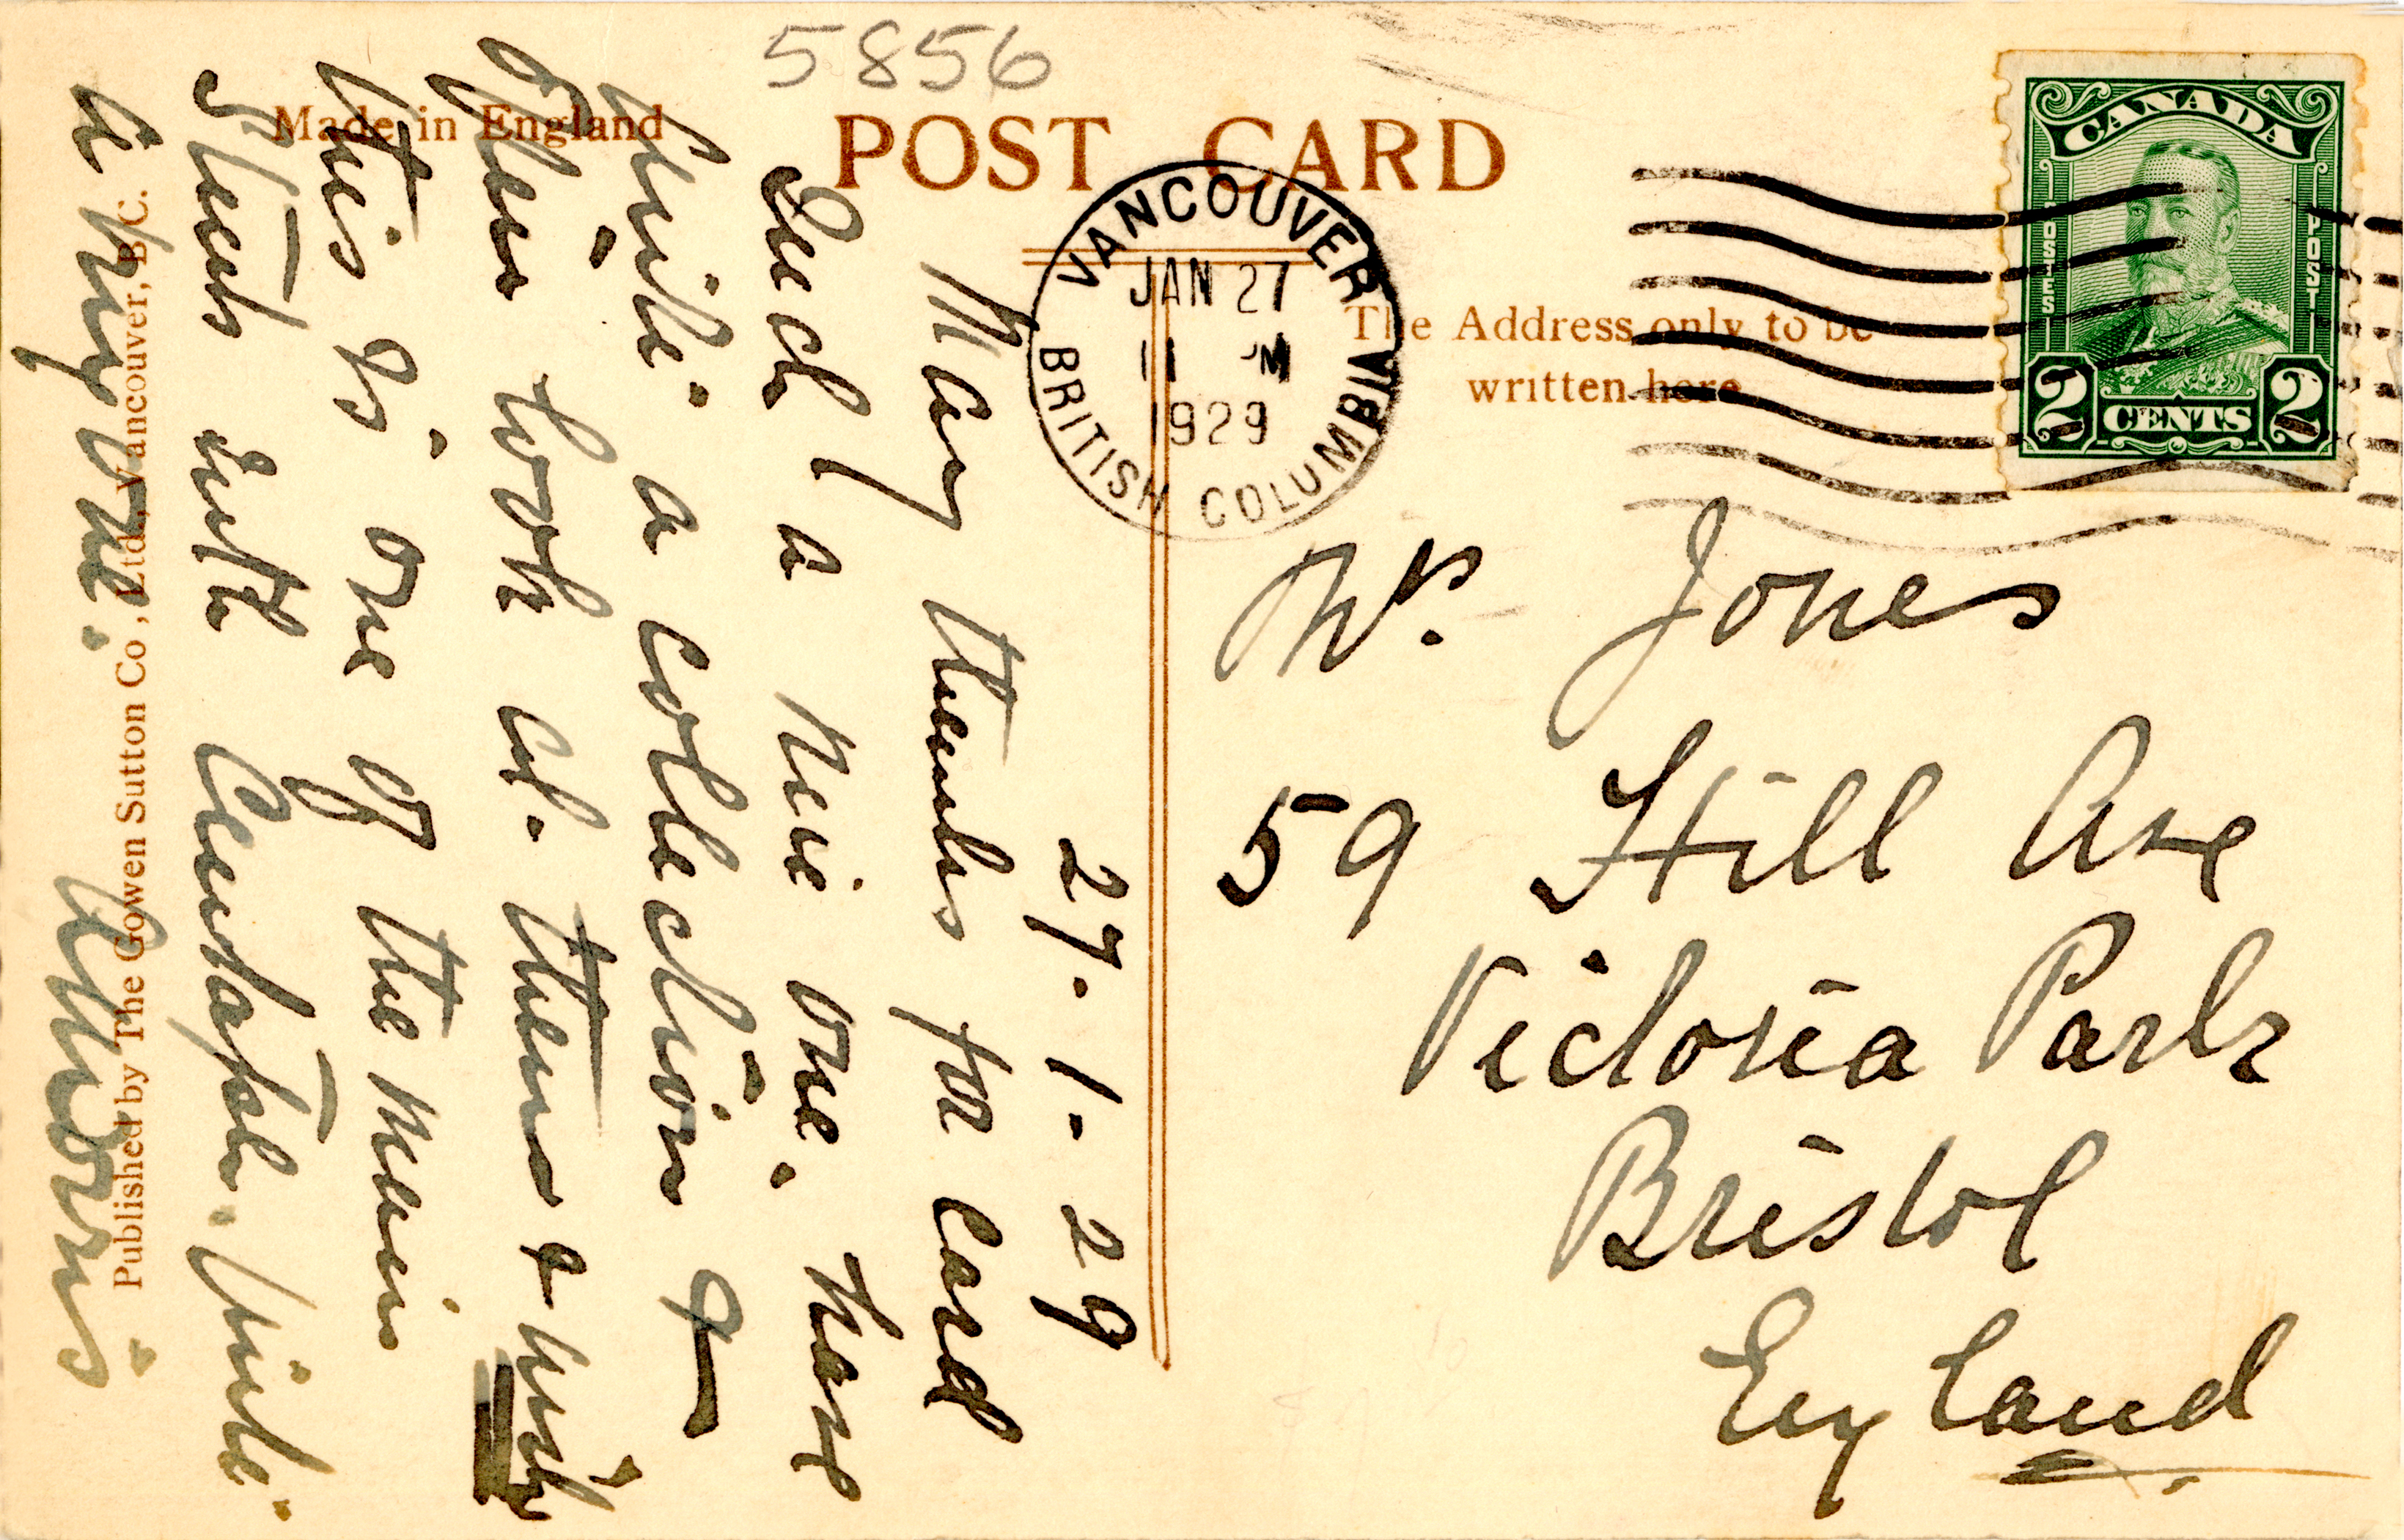 5856
Made in England
POST CARD
CANADA
POSTES POSTES
2 CENTS 2
VANCOUVER
JAN 27
11 M
1929
BRITISH COLUMBIA
The Address only to be
written here
27.1.29
Many thanks for card
Such a nice one. Have
quite a collection &
often look at them &
this is one of the main
Streets with Cenotaph. quite
a one.
Mr. Jones
59 Hill Ave
Victoria Park
Bristol
England
Published by The Gowen Sutton Co., Ltd., Vancouver, B.C.